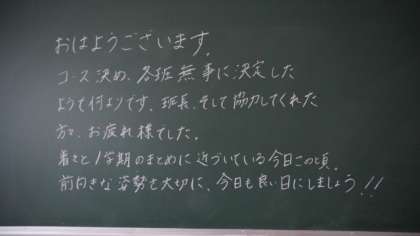 おはようございます。
コース決め、各班無事に決定した
ようで何よりです。班長、そして協力してくれた
方々、お疲れ様でした。
着々と1学期のまとめに近づいている今日この頃。
前向きな姿勢を大切に、今日も良い日にしましょう!!